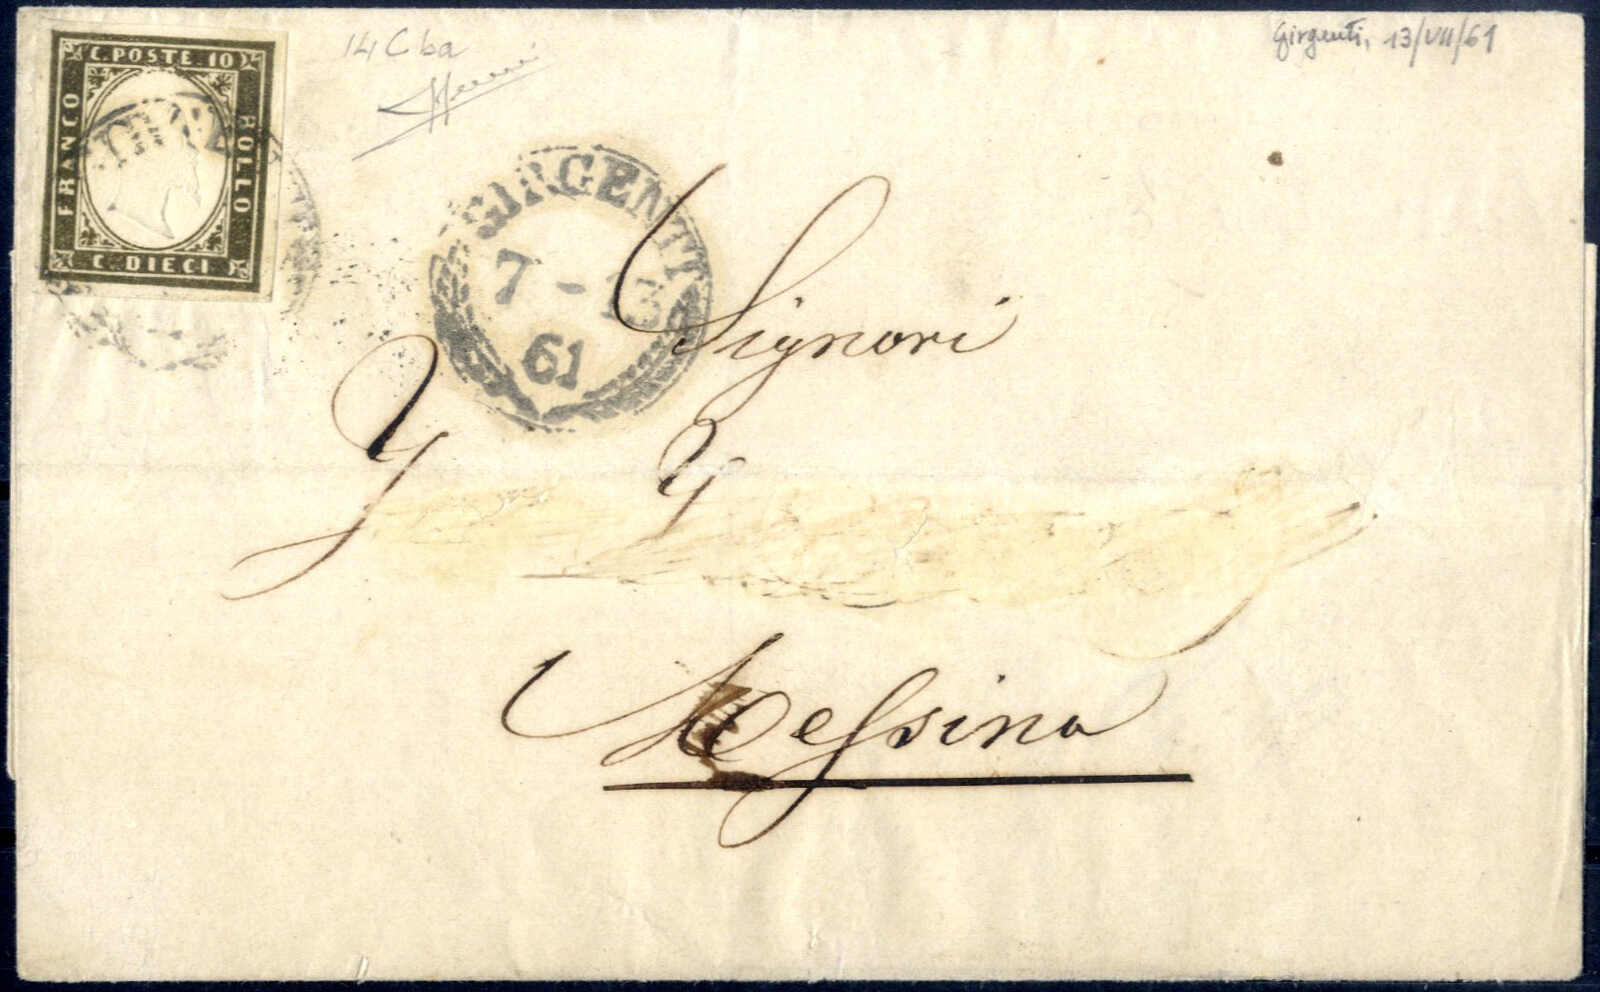 C. POSTE 10
FRANCO
BOLLO
C. DIECI
14 C ba
Girgenti, 13/VII/61
GIRGENTI
7 - 13
61
Signori
Messina